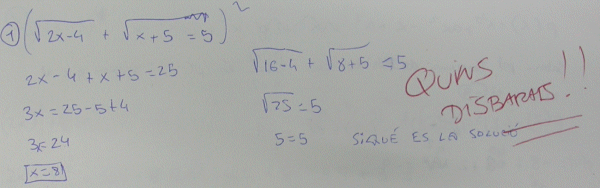 ① (√2x-4 + √x+5 = 5)²
2x-4+x+5=25
3x=25-5+4
3x=24
x=8
√16-4 + √8+5 = 5
√25 = 5
5=5 SI QUÉ ES LA SOLUCIÓ
QUINS
DISBARATS!!